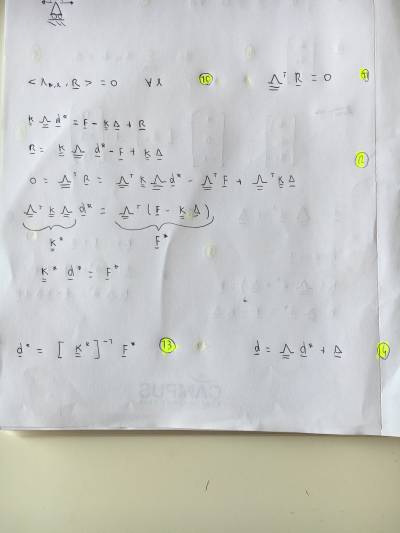 < Λ*,ℓ, R > = 0 ∀ ℓ 10 Λᵀ R = 0 11
K Λ d* = F - K Δ + R
R = K Λ d* - F + K Δ
12
0 = Λᵀ R = Λᵀ K Λ d* - Λᵀ F + Λᵀ K Δ
Λᵀ K Λ d* = Λᵀ ( F - K Δ )
K* F*
K* d* = F*
d* = [ K* ]⁻¹ F* 13 d = Λ d* + Δ 14
CAMPUS